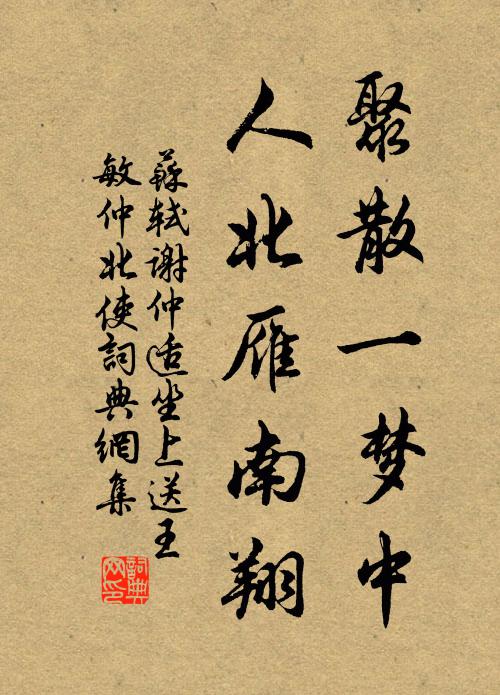 聚散一梦中
人北雁南翔
蘇軾谢仲适坐上送王
敏仲北使詞典網集
詞典
网印